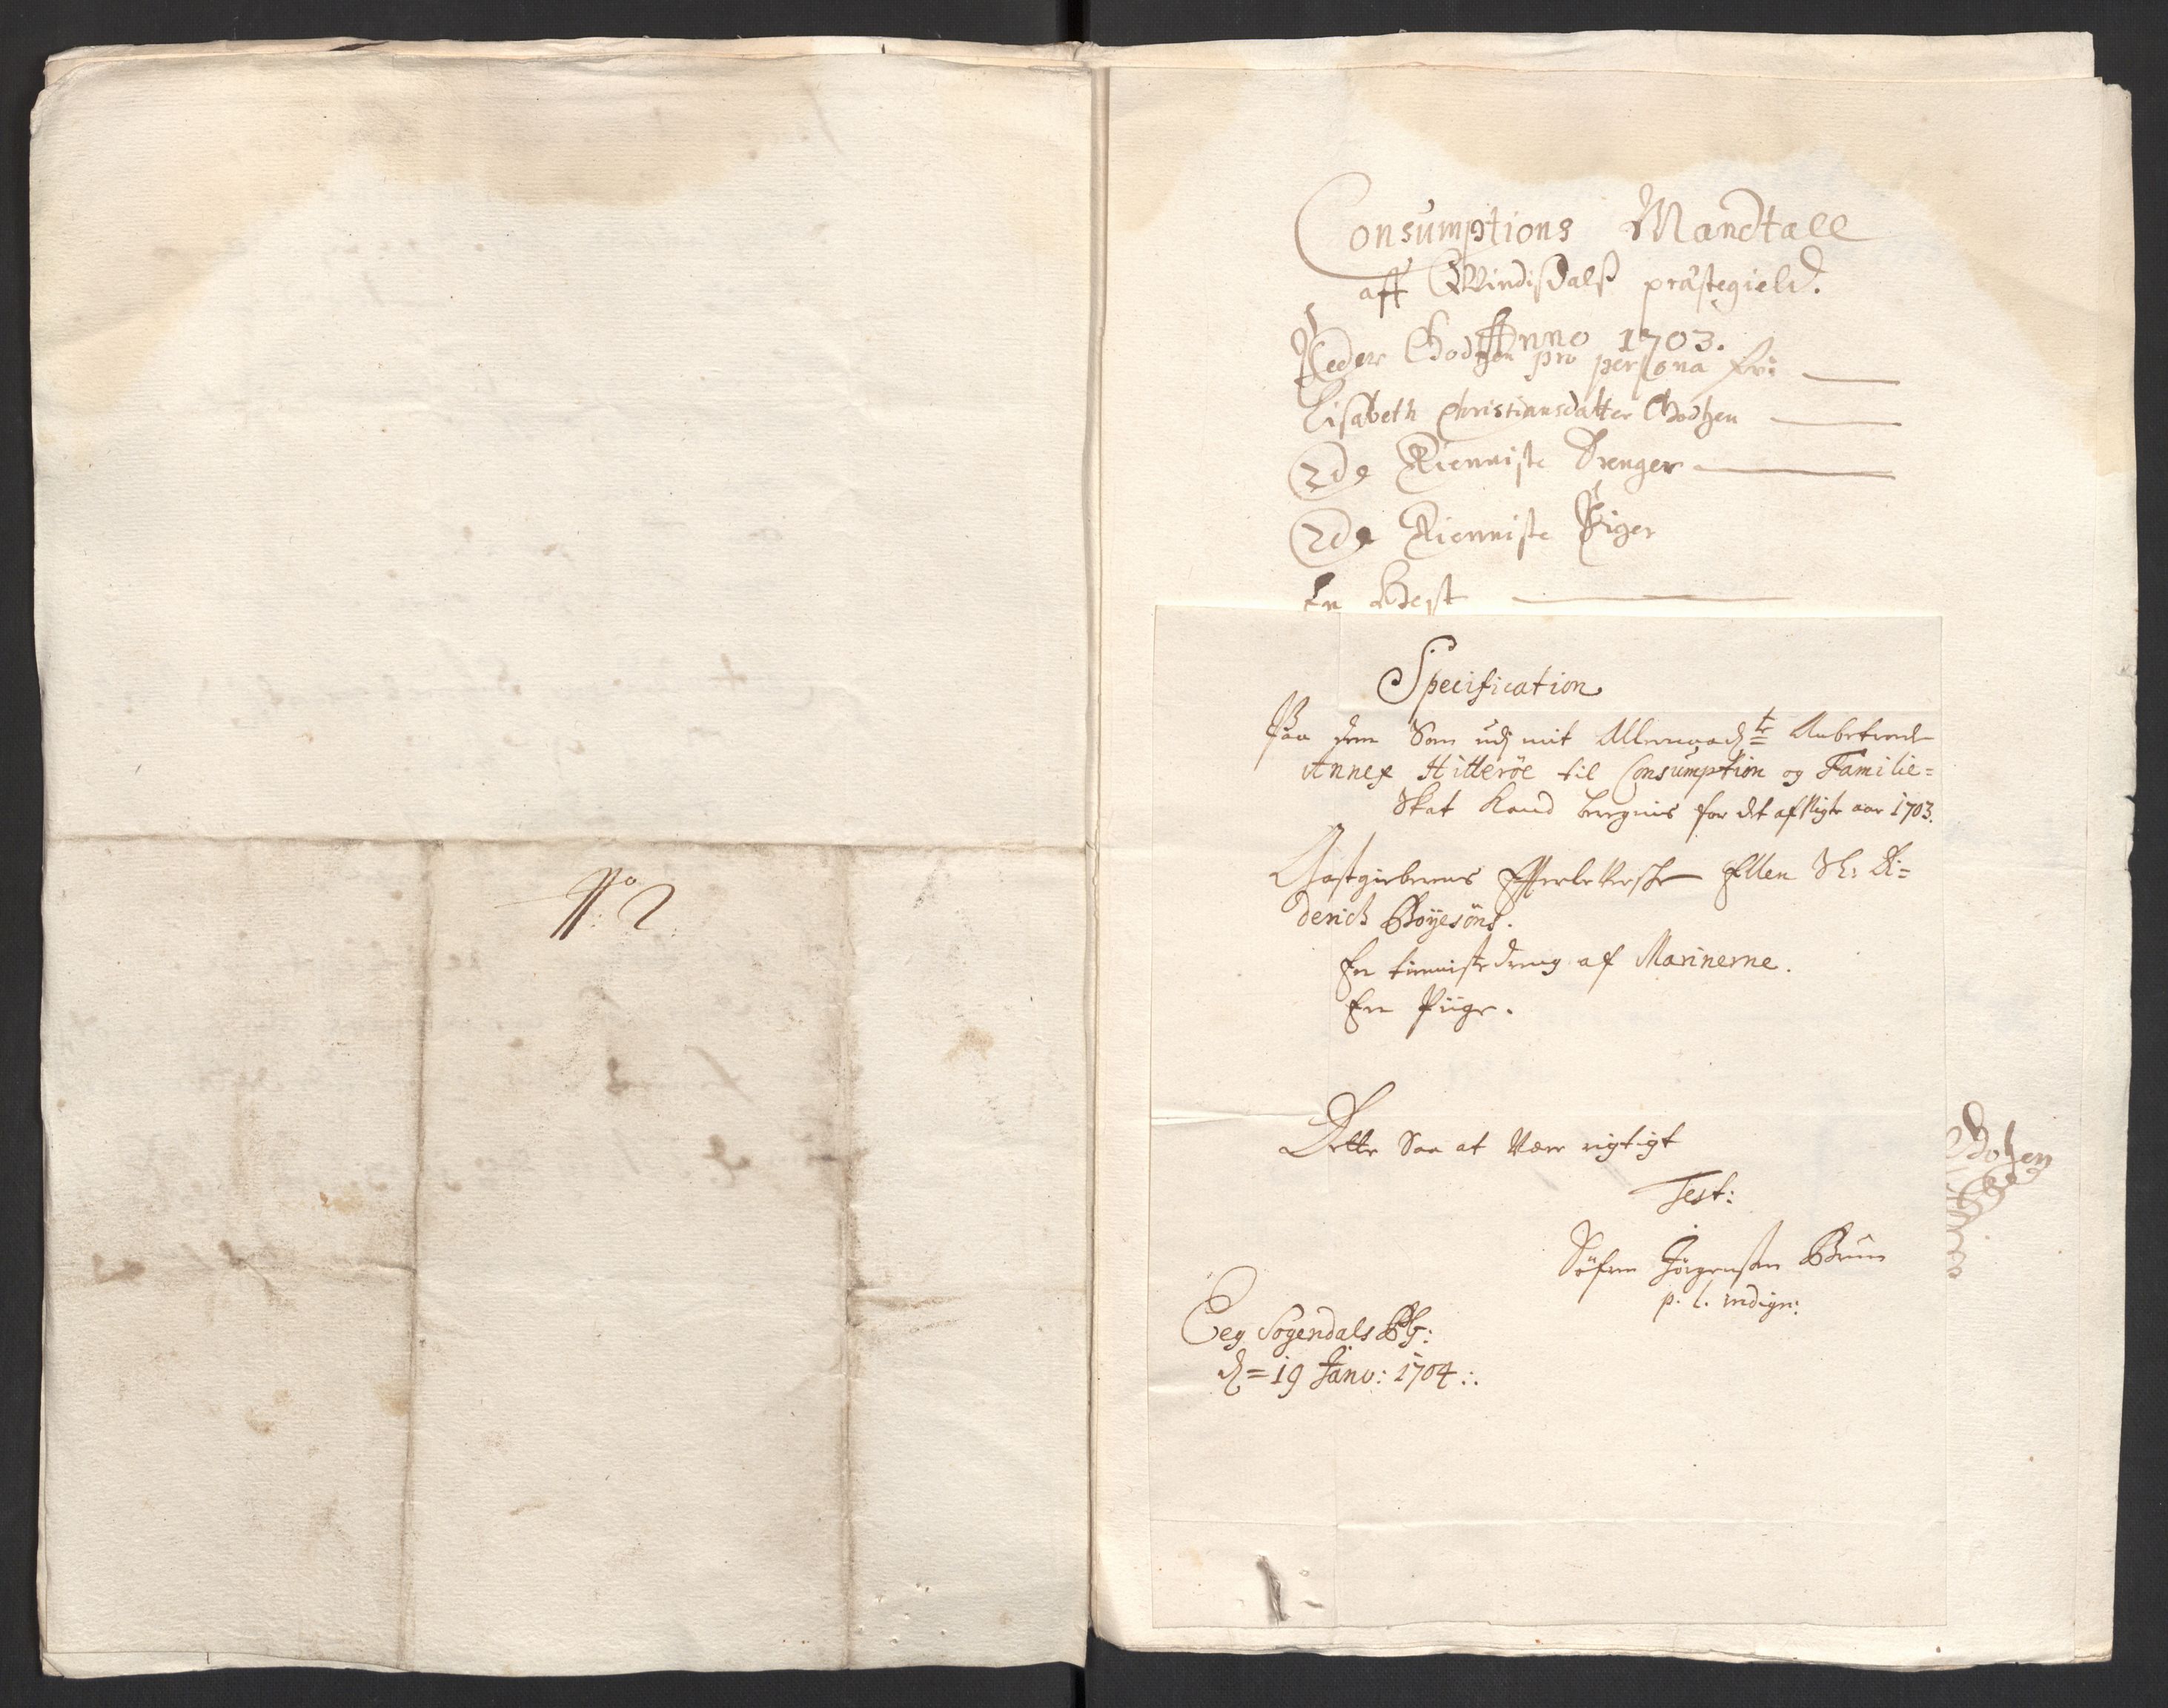 No 2
Consumptions Mandtall
aff Qvindisdalß præstegield.
Anno 1703.
Peder Godtzen pro persona fri
Elisabeth Christiansdatter Godtzen
2de Tienniste Drenger
2de Tienniste Piger
En Hest
Specification
Paa dem Som udj mit Allernaadte Anbetroede
Annex Hitterøe til Consumption og Familie=
Skat kand beregnis for det afvigte aar 1703.
Gastgieberens Efterleverske Ellen Sl: Di=
derich Boÿesöns.
En tienniste dreng af Marinerne.
En Piige.
Dette Saa at Være rigtigt
Test:
Söfren Jörgensen Bruun
p. l. indign:
Eeg Sogendals Pg:
d= 19 Janv: 1704 :.
Gotzen